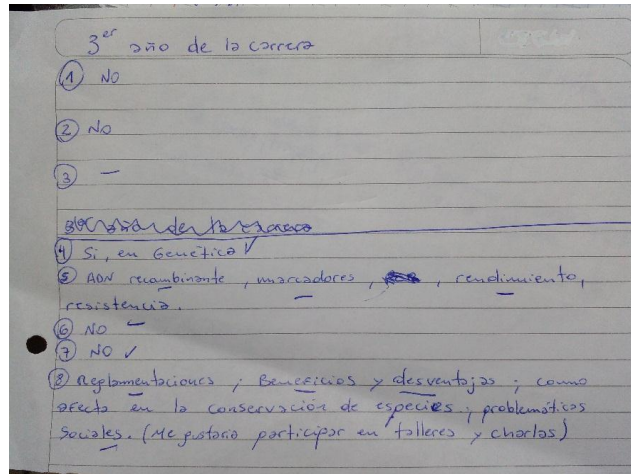 3er año de la carrera
① NO
② NO
③ —
④ Si, en Genética ✓
⑤ ADN recombinante, marcadores, , rendimiento,
resistencia.
⑥ NO
⑦ NO ✓
⑧ Reglamentaciones ; Beneficios y desventajas ; como
afecta en la conservación de especies ; problemáticas
sociales. (Me gustaria participar en talleres y charlas)